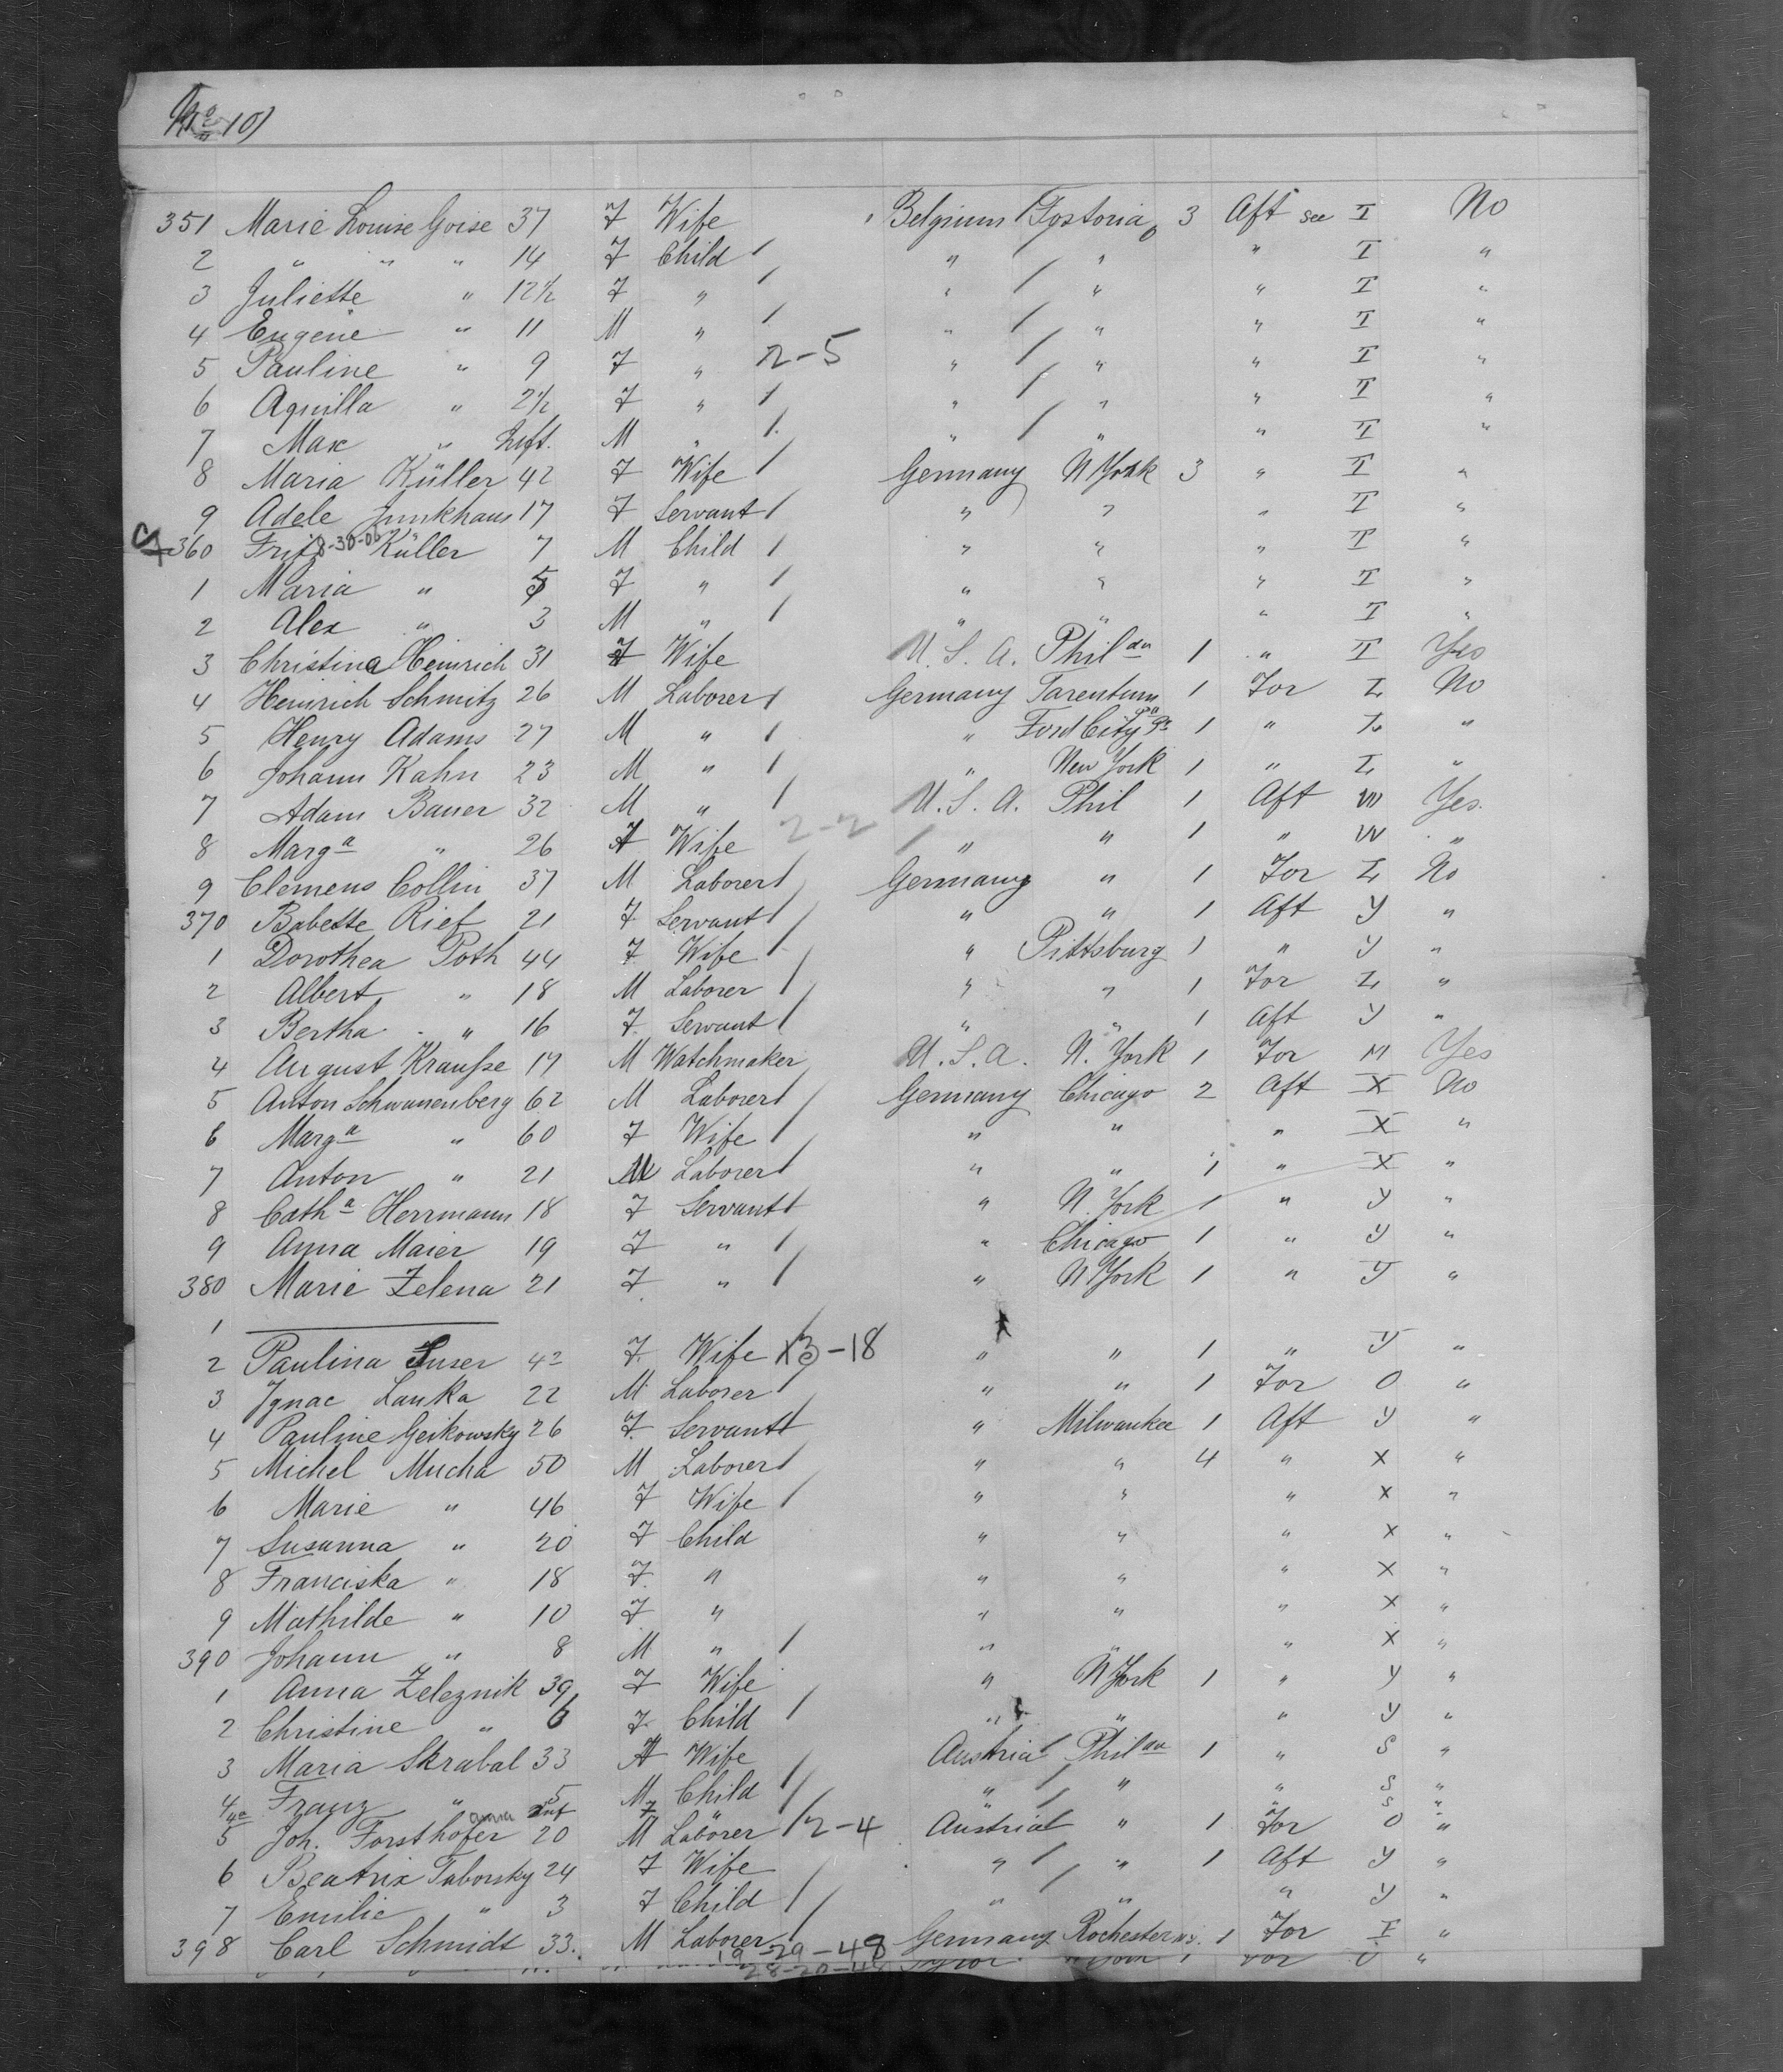 No 10)
351 Marie Louise Goise 37 F Wife Belgium Fostoria 3 Aft see I No
2 " " " 14 F Child 1 " " " I "
3 Juliette " 12½ F " 1 " " " I "
4 Eugene " 11 M " 1 " " " I "
5 Pauline " 9 F " 2-5 " " " I "
6 Aquilla " 2½ F " 1 " " " I "
7 Max " Inft. M " 1 " " " I "
8 Maria Küller 42 F Wife 1 Germany N York 3 " I "
9 Adele Junkhaus 17 F Servant 1 " " " I "
360 Fritz 8-30-06 Küller 7 M Child 1 " " " I "
1 Maria " 5 F " 1 " " " I "
2 Alex " 3 M " 1 " " " I "
3 Christina Heinrich 31 F Wife U.S.A. Philda 1 " I Yes
4 Heinrich Schmitz 26 M Laborer 1 Germany Tarentum 1 For L No
5 Henry Adams 27 M " 1 " Ford City Pa 1 " L "
6 Johann Kahn 23 M " 1 " New York 1 " L "
7 Adam Bauer 32 M " 1 U.S.A. Phil 1 Aft W Yes.
8 Marga " 26 F Wife 2-2 " " 1 " W "
9 Clemens Collin 37 M Laborer 1 Germany " 1 For L No
370 Babette Rief 21 F Servant 1 " " 1 Aft Y "
1 Dorothea Poth 44 F Wife 1 " Pittsburg 1 " Y "
2 Albert " 18 M Laborer 1 " " 1 For L "
3 Bertha " 16 F Servant 1 " " 1 Aft Y "
4 August Krauße 17 M Watchmaker U.S.A. N. York 1 For M Yes
5 Anton Schwanenberg 62 M Laborer 1 Germany Chicago 2 Aft X No
6 Marga " 60 F Wife 1 " " " X "
7 Anton " 21 M Laborer 1 " " 1 " X "
8 Catha Herrmann 18 F Servant 1 " N. York 1 " Y "
9 Anna Maier 19 F " 1 " Chicago 1 " Y "
380 Marie Zelena 21 F " 1 " N York 1 " Y "
1
2 Paulina Suser 42 F Wife X3-18 " " 1 " Y "
3 Ignac Lanka 22 M Laborer 1 " " 1 For O "
4 Pauline Geikowsky 26 F Servant 1 " Milwaukee 1 Aft Y "
5 Michel Mucha 50 M Laborer 1 " " 4 " X "
6 Marie " 46 F Wife 1 " " " X "
7 Susanna " 20 F Child " " " X "
8 Franciska " 18 F " " " " X "
9 Mathilde " 10 F " " " " X "
390 Johann " 8 M " 1 " " " X "
1 Anna Zeleznik 39 F Wife " N York 1 " Y "
2 Christine " 6 F Child 1 " " " Y "
3 Maria Skrabal 33 F Wife Austria Philda 1 " S "
4 Franz " 5 M Child 1 " " " S "
4a Anna Inf F " " " " S "
5 Joh. Forsthofer 20 M Laborer 1 2-4 Austria " 1 For O "
6 Beatrix Taborsky 24 F Wife " " 1 Aft Y "
7 Emilie " 3 F Child 1 " " " Y "
398 Carl Schmidt 33 M Laborer 1 Germany Rochester N.Y. 1 For I "
19-29-48